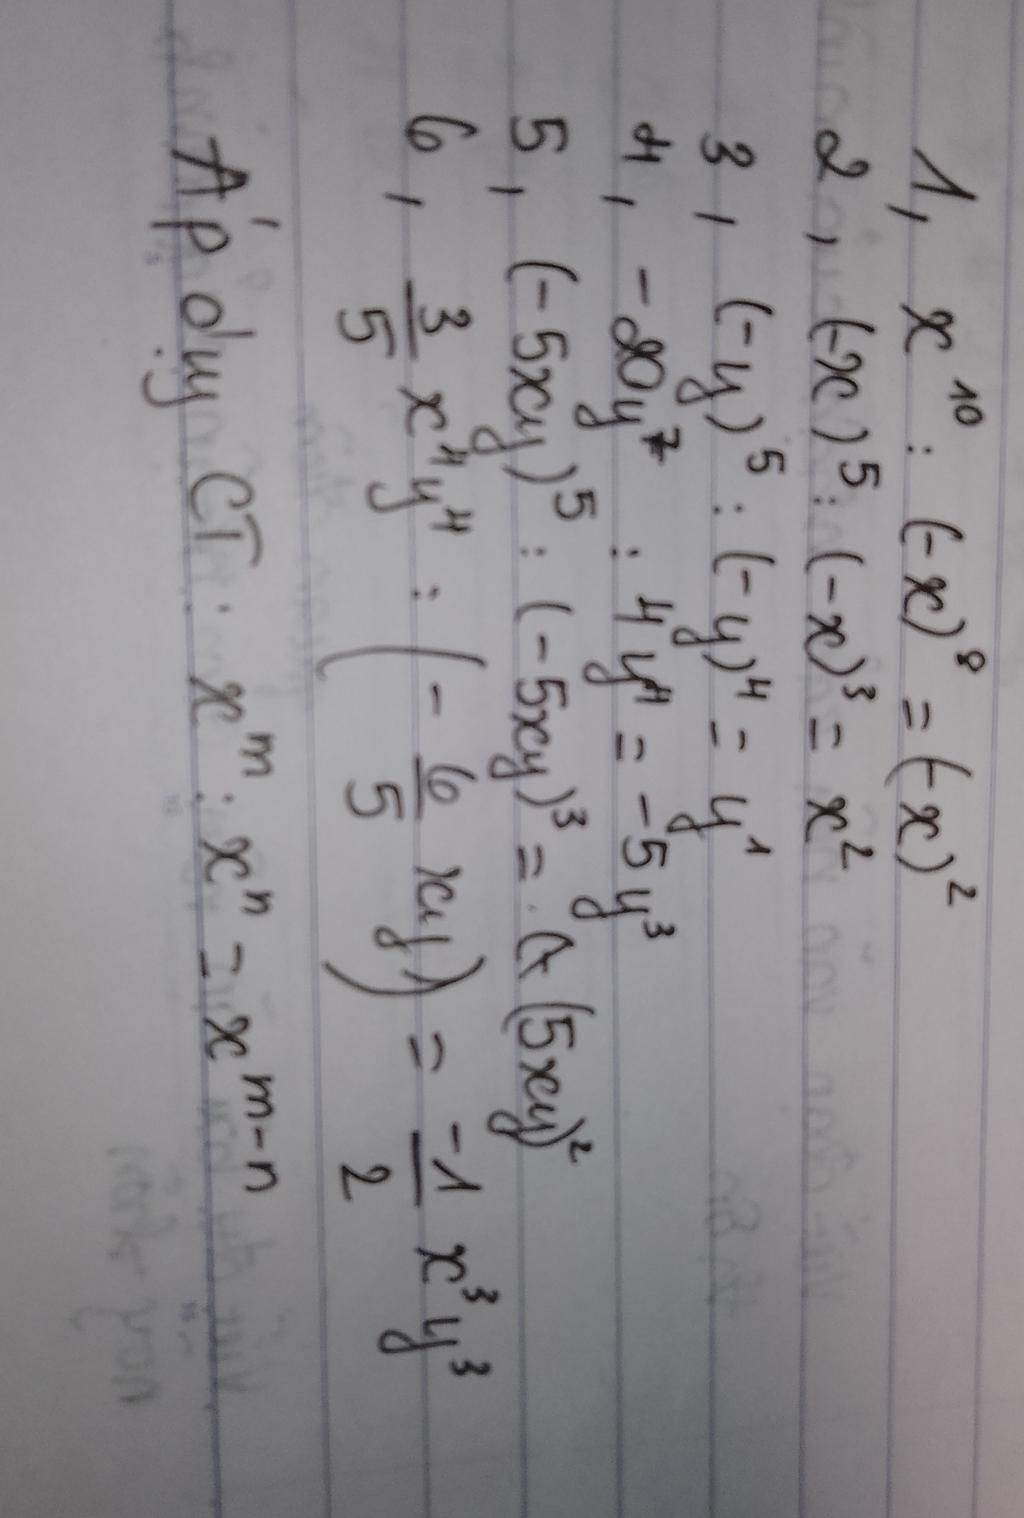 1, x¹⁰ : (-x)⁸ = (-x)²
2, (-x)⁵ : (-x)³ = x²
3, (-y)⁵ : (-y)⁴ = y¹
4, -20y⁷ : 4y⁴ = -5y³
5, (-5xy)⁵ : (-5xy)³ = (+ (5xy)²
6, 3/5 x⁴y⁴ : (- 6/5 xy) = -1/2 x³y³
Áp dụng CT : xᵐ : xⁿ = xᵐ⁻ⁿ